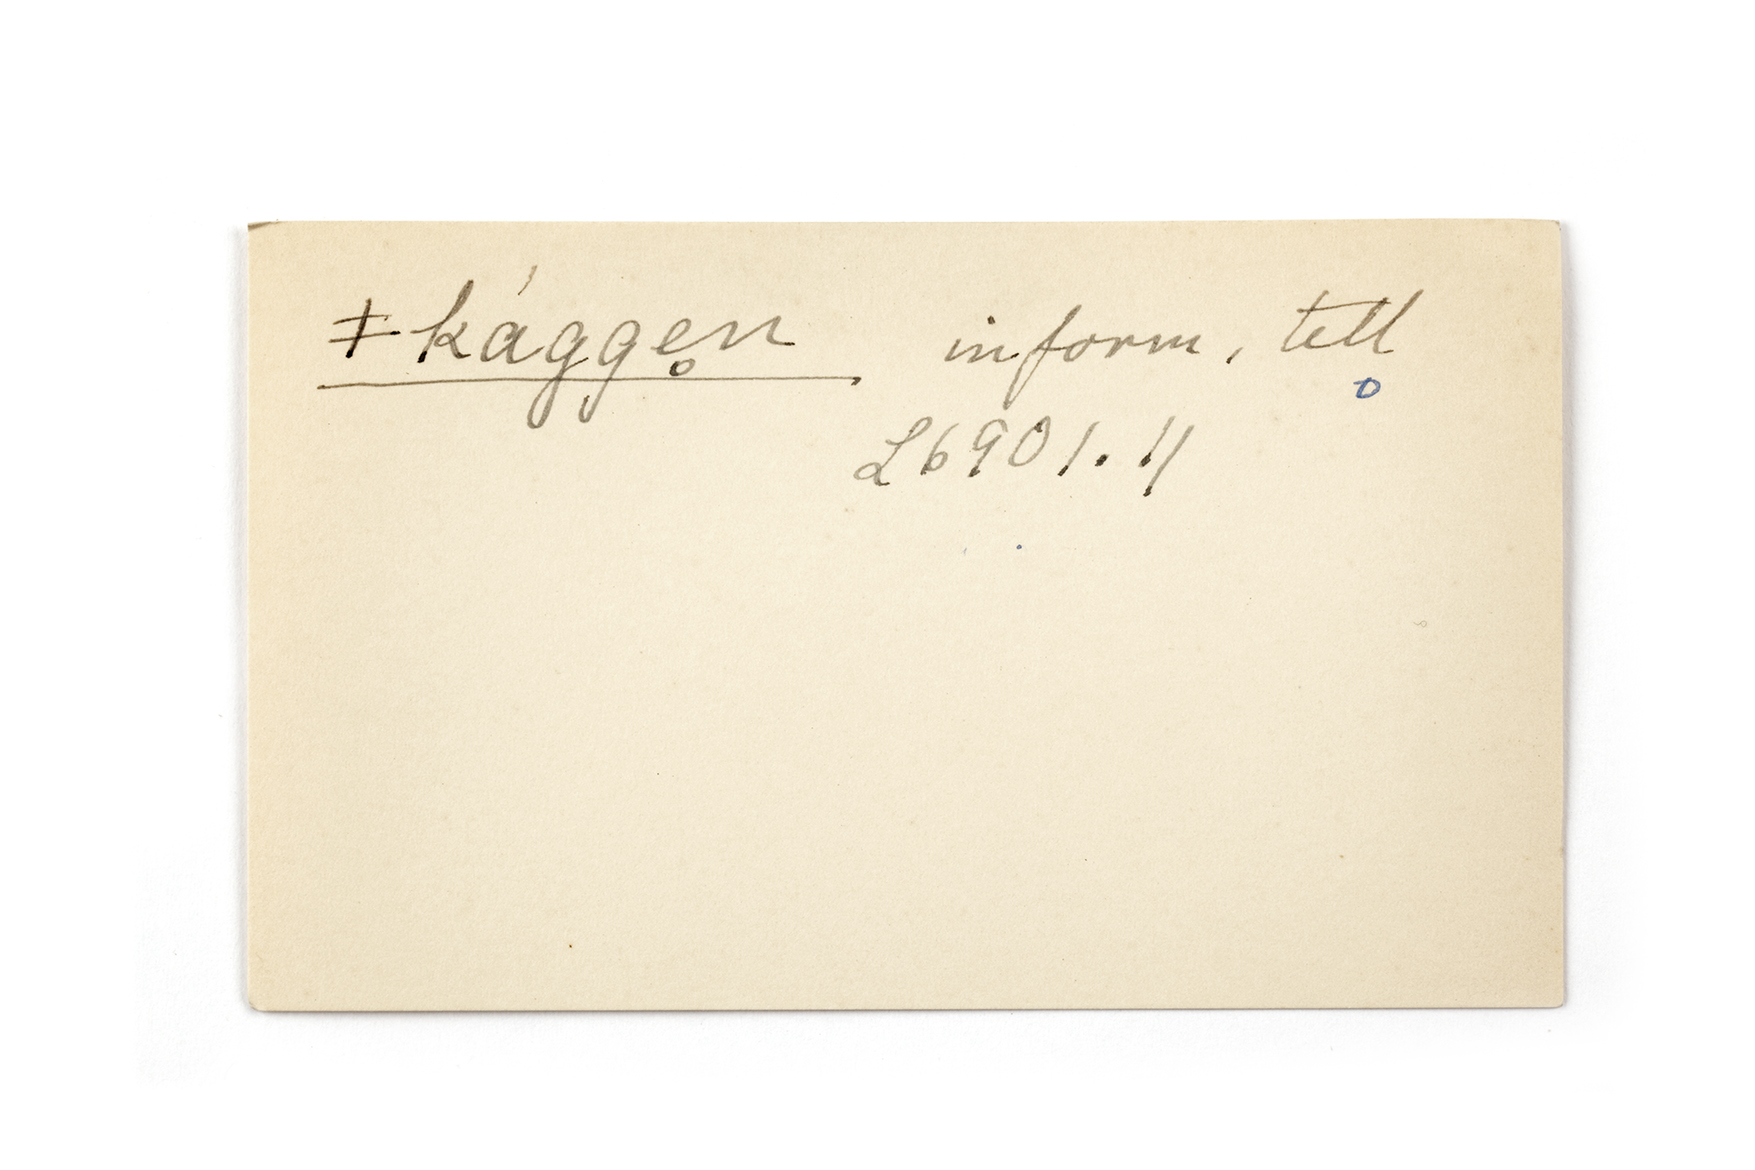 ǂkágge̥n inform, tell
L6901. 11